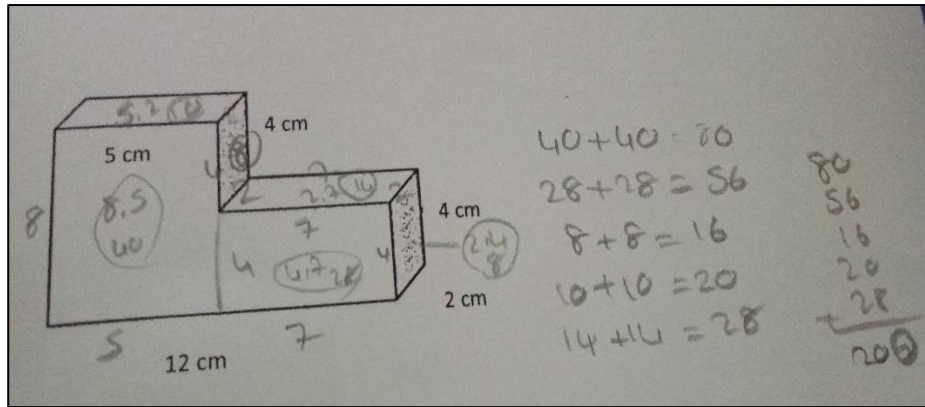 5.2 10
4 cm
5 cm
4
8
2
2
2.7 14
2
8
8.5
40
7
4 cm
4
4.7 28
4
2.4
8
2 cm
5
7
12 cm
40+40=80
28+28=56
8+8=16
10+10=20
14+14=28
80
56
16
20
+ 28
200